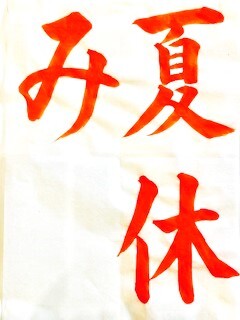 夏休
み